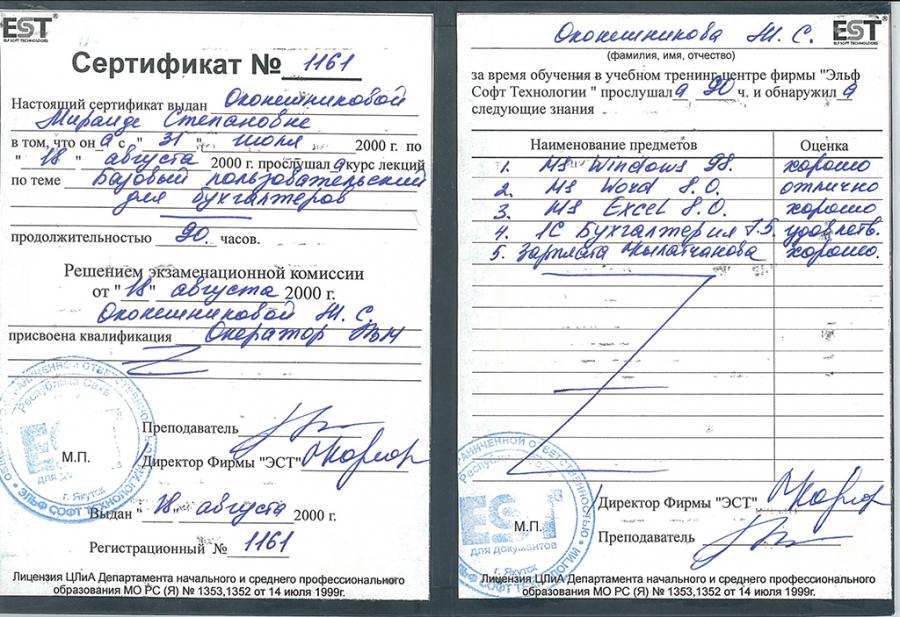 EST
ELF SOFT TECHNOLOGIES
Сертификат № 1161
Настоящий сертификат выдан Оконешниковой
Мираиде Степановне
в том, что она с "31" июля 2000 г. по
"18" августа 2000 г. прослушала курс лекций
по теме Базовый пользовательский
для бухгалтеров
продолжительностью 90 часов.
Решением экзаменационной комиссии
от "18" августа 2000 г.
Оконешниковой М. С.
присвоена квалификация Оператор ЭВМ
Преподаватель
М.П.
Директор Фирмы "ЭСТ"
Выдан "18" августа 2000 г.
Регистрационный № 1161
Лицензия ЦЛиА Департамента начального и среднего профессионального
образования МО РС (Я) № 1353,1352 от 14 июля 1999г.
Республика Саха
г. Якутск
ЭЛЬФ СОФТ ТЕХНОЛОГИИ
Оконешникова М. С.
EST
ELF SOFT TECHNOLOGIES
(фамилия, имя, отчество)
за время обучения в учебном тренинг центре фирмы "Эльф
Софт Технологии " прослушала 90 ч. и обнаружила
следующие знания
Наименование предметов Оценка
1. MS Windows 98. хорошо
2. MS Word 8.0. отлично
3. MS Excel 8.0. хорошо
4. 1С Бухгалтерия 7.5 удовлетв.
5. Зарплата хорошо.
Директор Фирмы "ЭСТ"
М.П.
Преподаватель
EST
для документов
г. Якутск
Лицензия ЦЛиА Департамента начального и среднего профессионального
образования МО РС (Я) № 1353,1352 от 14 июля 1999г.